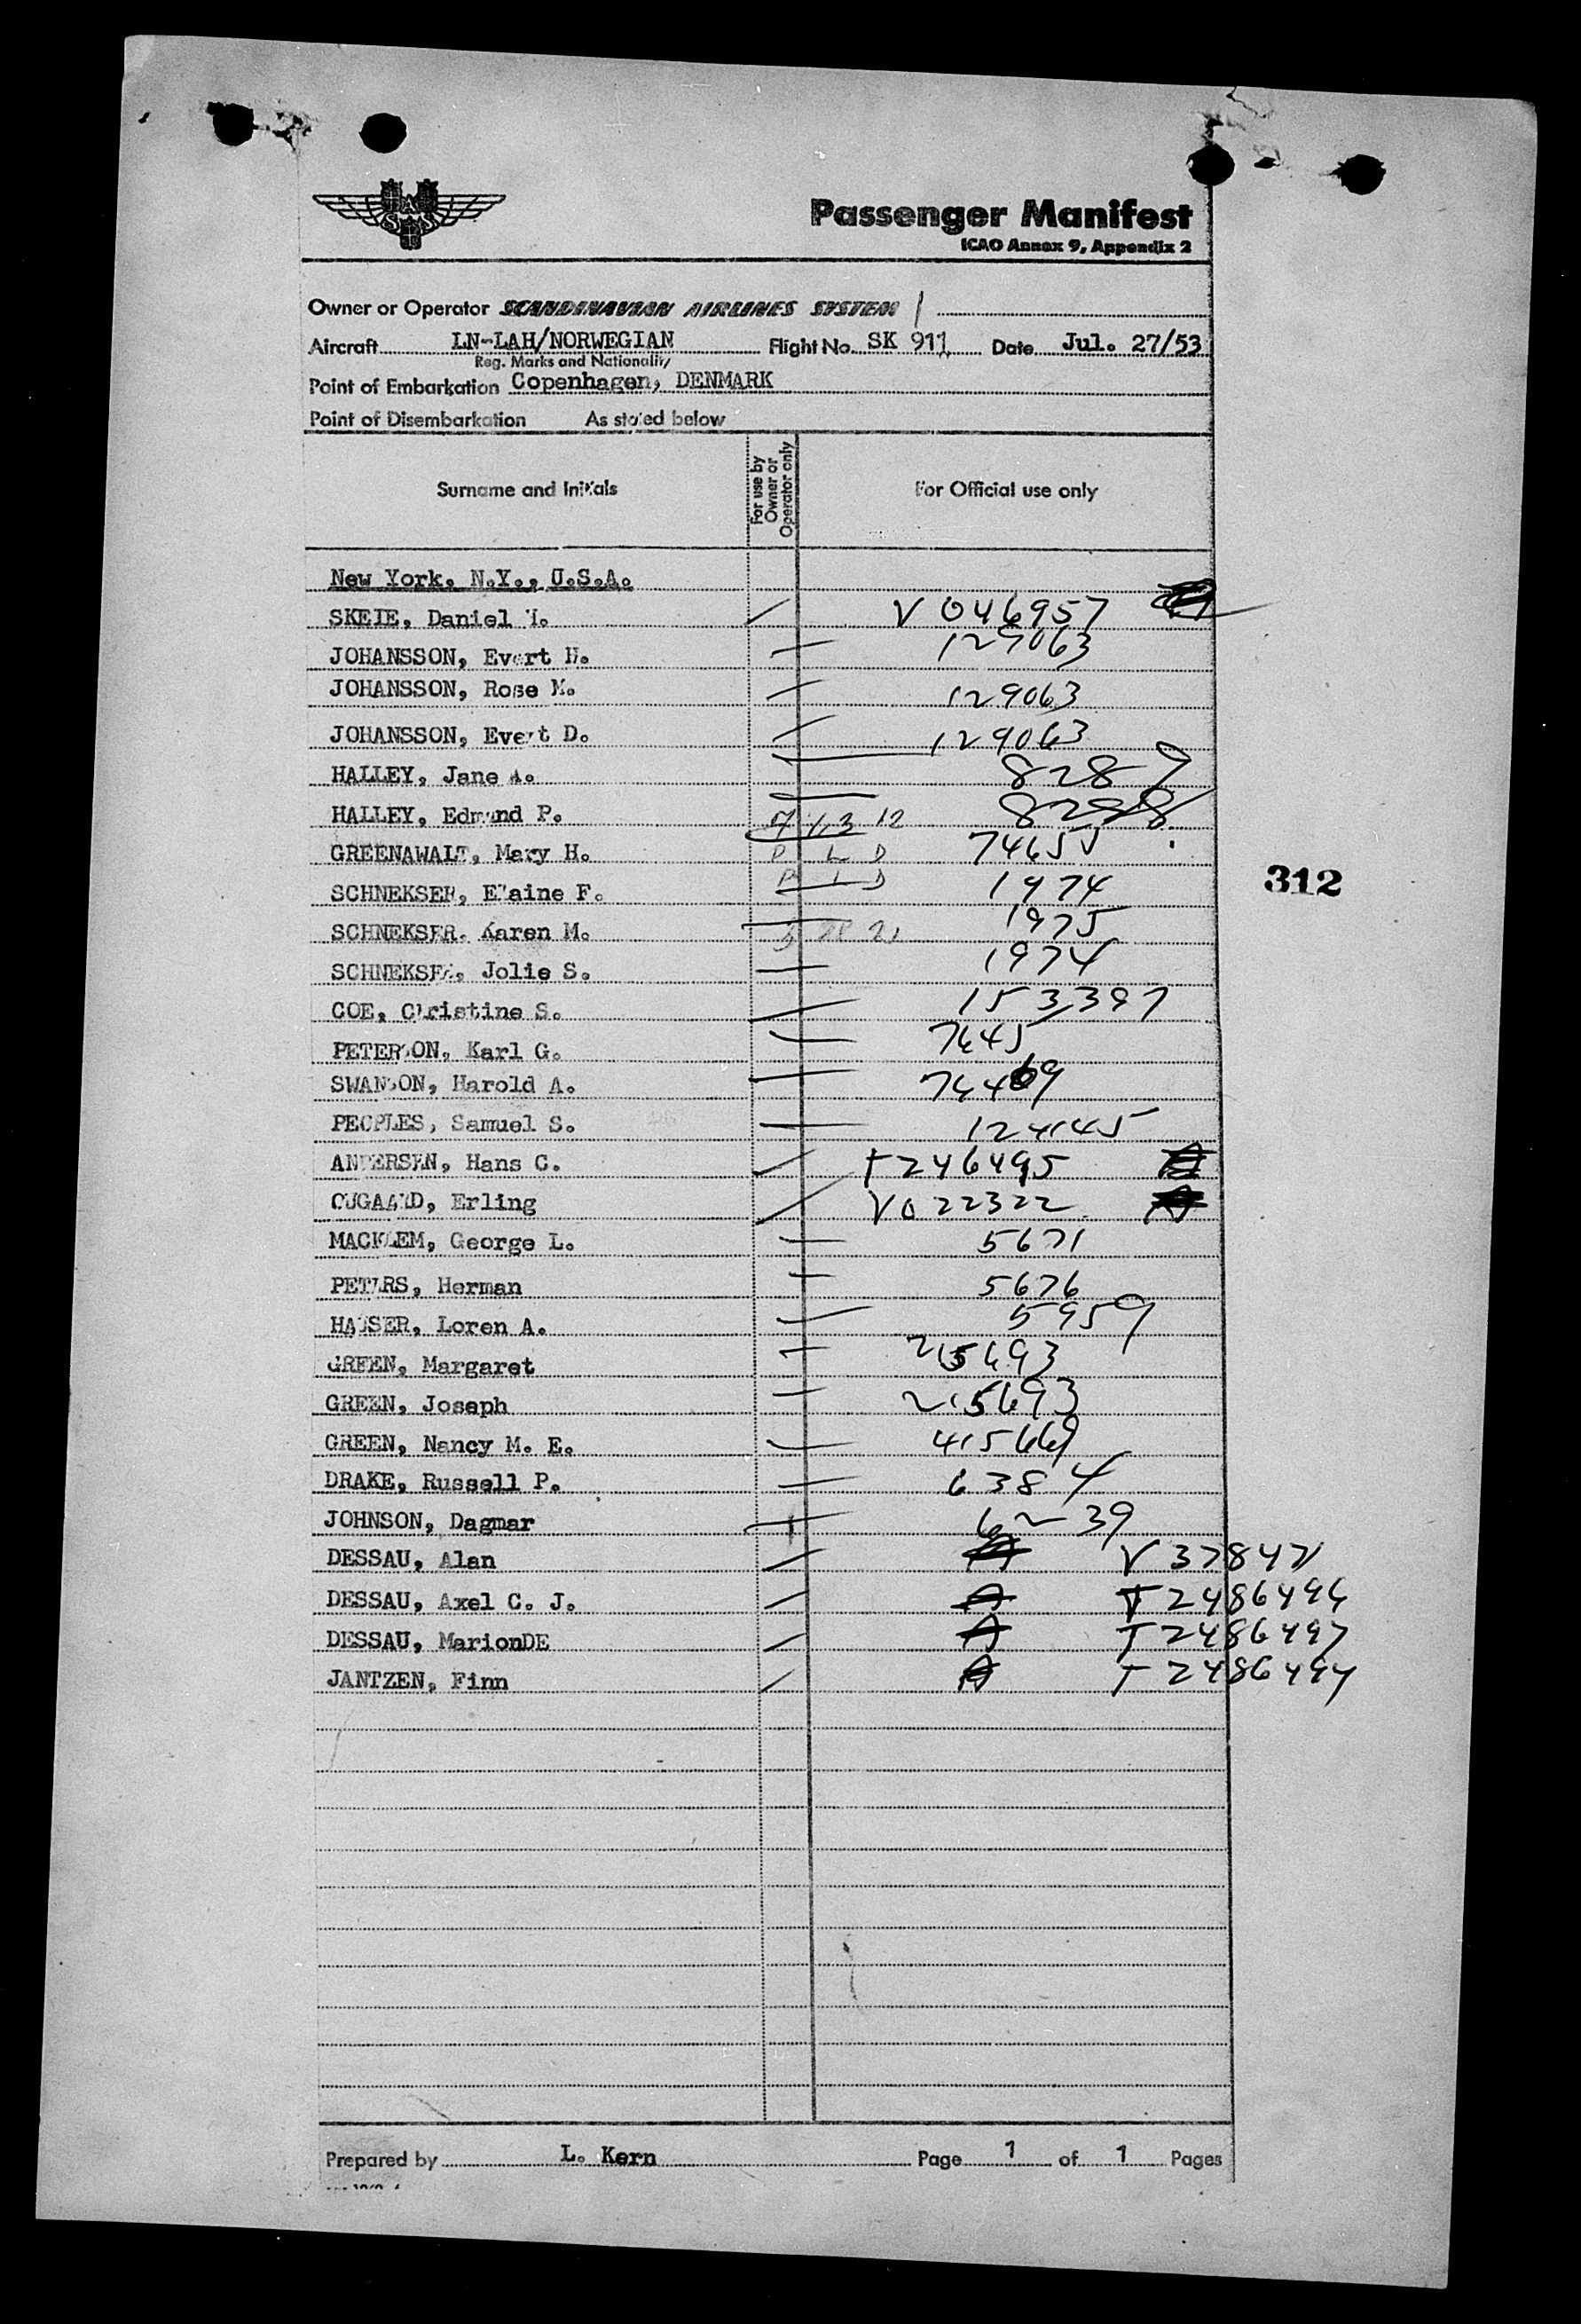 SAS
Passenger Manifest
ICAO Annex 9, Appendix 2
Owner or Operator SCANDINAVIAN AIRLINES SYSTEM
Aircraft LN-LAH/NORWEGIAN Flight No. SK 911 Date Jul. 27/53
Reg. Marks and Nationality
Point of Embarkation Copenhagen, DENMARK
Point of Disembarkation As stated below
Surname and Initials For use by Owner or Operator only For Official use only
New York, N.Y., U.S.A.
SKEIE, Daniel V 046957
JOHANSSON, Evert H. 129063
JOHANSSON, Rose M. 129063
JOHANSSON, Evert D. 129063
HALLEY, Jane A. 8289
HALLEY, Edmund P.
GREENAWALT, Mary H. 74655
SCHNEKSER, Elaine F. 1974
312
SCHNEKSER, Karen M. 1975
SCHNEKSER, Jolie S. 1974
COE, Christine S. 153397
PETERSON, Karl G. 7645
SWANSON, Harold A.
PEOPLES, Samuel S. 124145
ANDERSEN, Hans C. T246495
Erling V022322
MACKLEM, George L. 5671
PETERS, Herman 5676
HAUSER, Loren A. 5959
GREEN, Margaret 215693
GREEN, Joseph 215693
GREEN, Nancy M. E. 415669
DRAKE, Russell P. 6384
JOHNSON, Dagmar 6239
DESSAU, Alan V 37847
DESSAU, Axel C. J. T 2486496
DESSAU, MarionDE T 2486497
JANTZEN, Finn T 2486494
Prepared by L. Kern Page 1 of 1 Pages